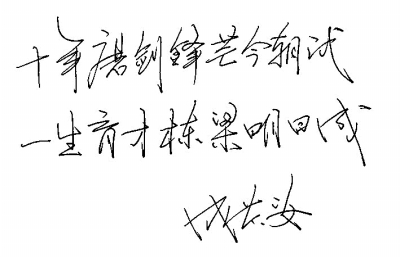 十年磨剑锋芒今朝试
一生育才栋梁明日成